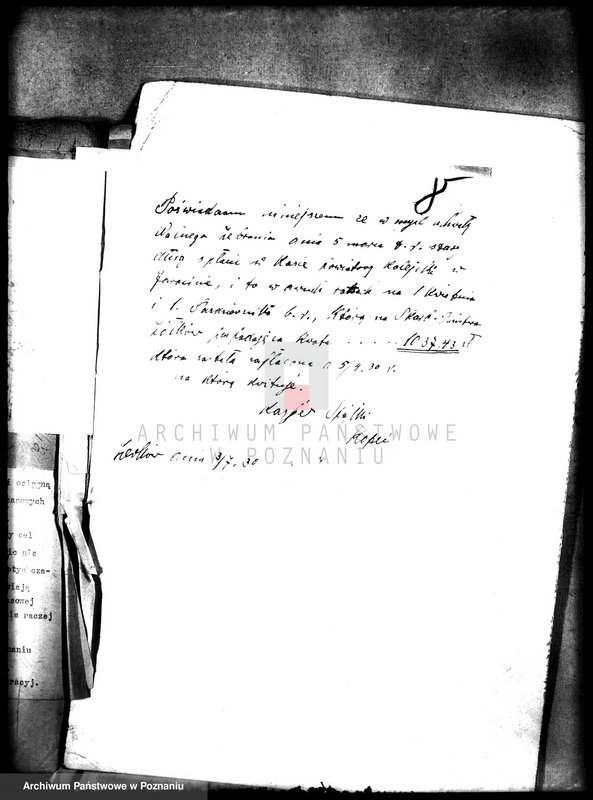 8
Poświadczam niniejszem że w myśl uchwały
Walnego Zebrania dnia 5 marca b. r. stary
dług spłacić w Kasie powiatowej kolejki w
Jarocinie, i to w dwuch ratach na 1 Kwietnia
i 1. Październik b. r., która na
Żerków przypadająca kwota ..... 10 37 43 zł
która została zapłacona d 5/4. 30 r.
na którą kwituję.
Kasper
Żerków dnia 3/7. 30
ARCHIWUM PAŃSTWOWE
W POZNANIU
i osięgną
zasowych
y cel
ic nie
otychcza-
wiają
asowej
ie raczej
naniu
racyj.
Archiwum Państwowe w Poznaniu